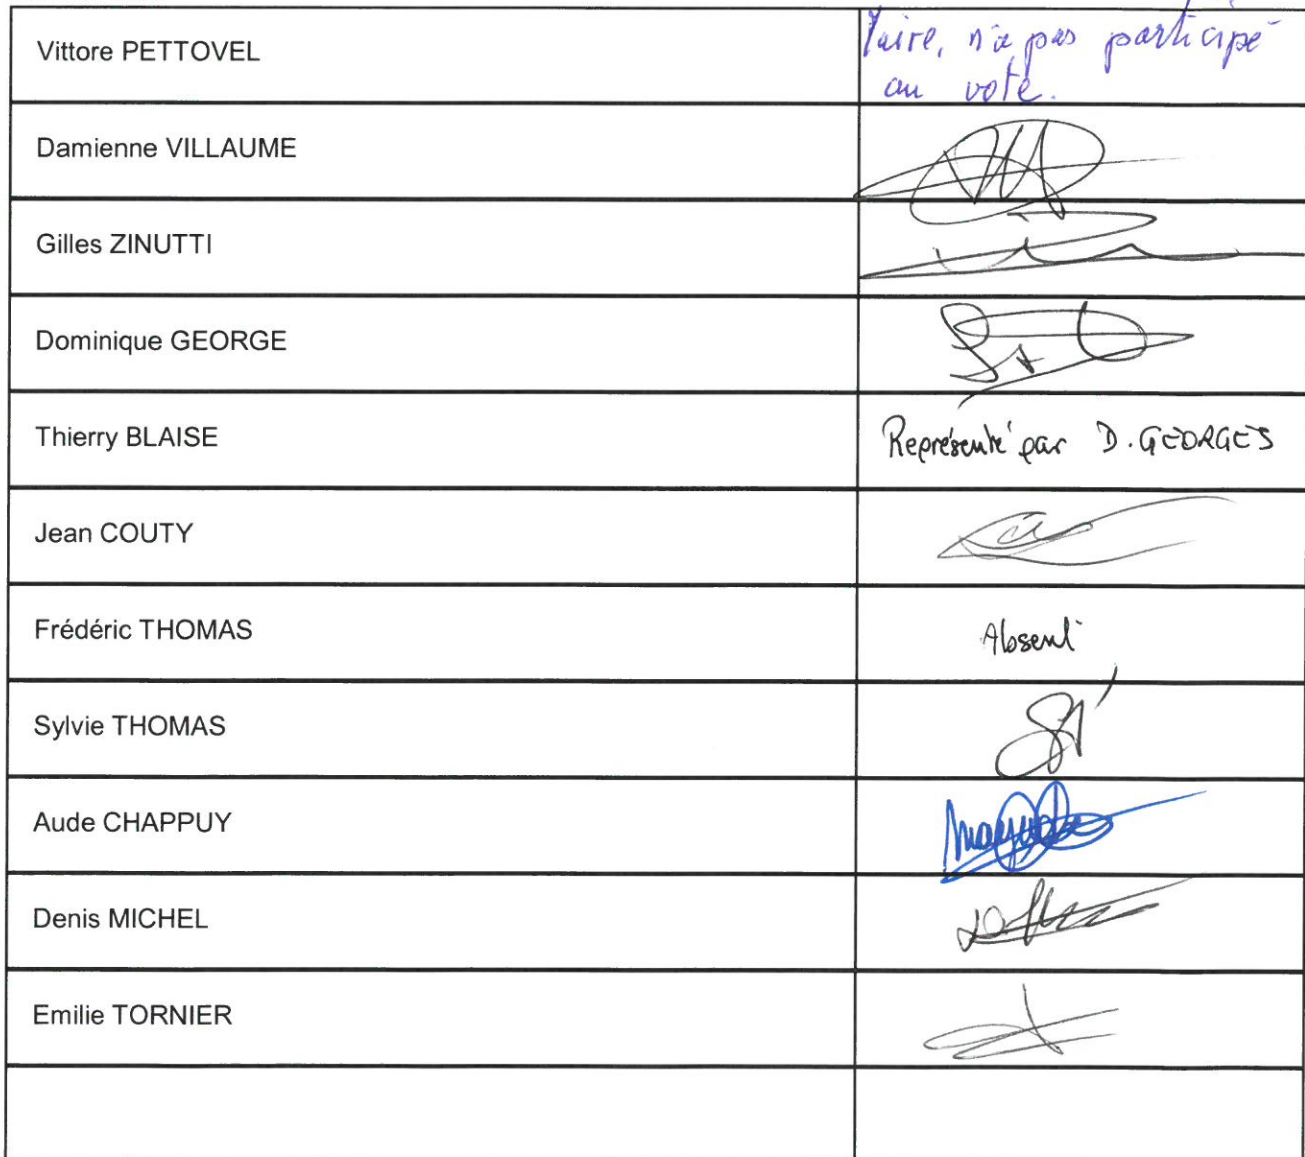 Vittore PETTOVEL
Maire, n'a pas participé
au vote.
Damienne VILLAUME
Gilles ZINUTTI
Dominique GEORGE
Thierry BLAISE
Représenté par D. GEORGES
Jean COUTY
Frédéric THOMAS
Absent
Sylvie THOMAS
Aude CHAPPUY
Denis MICHEL
Emilie TORNIER